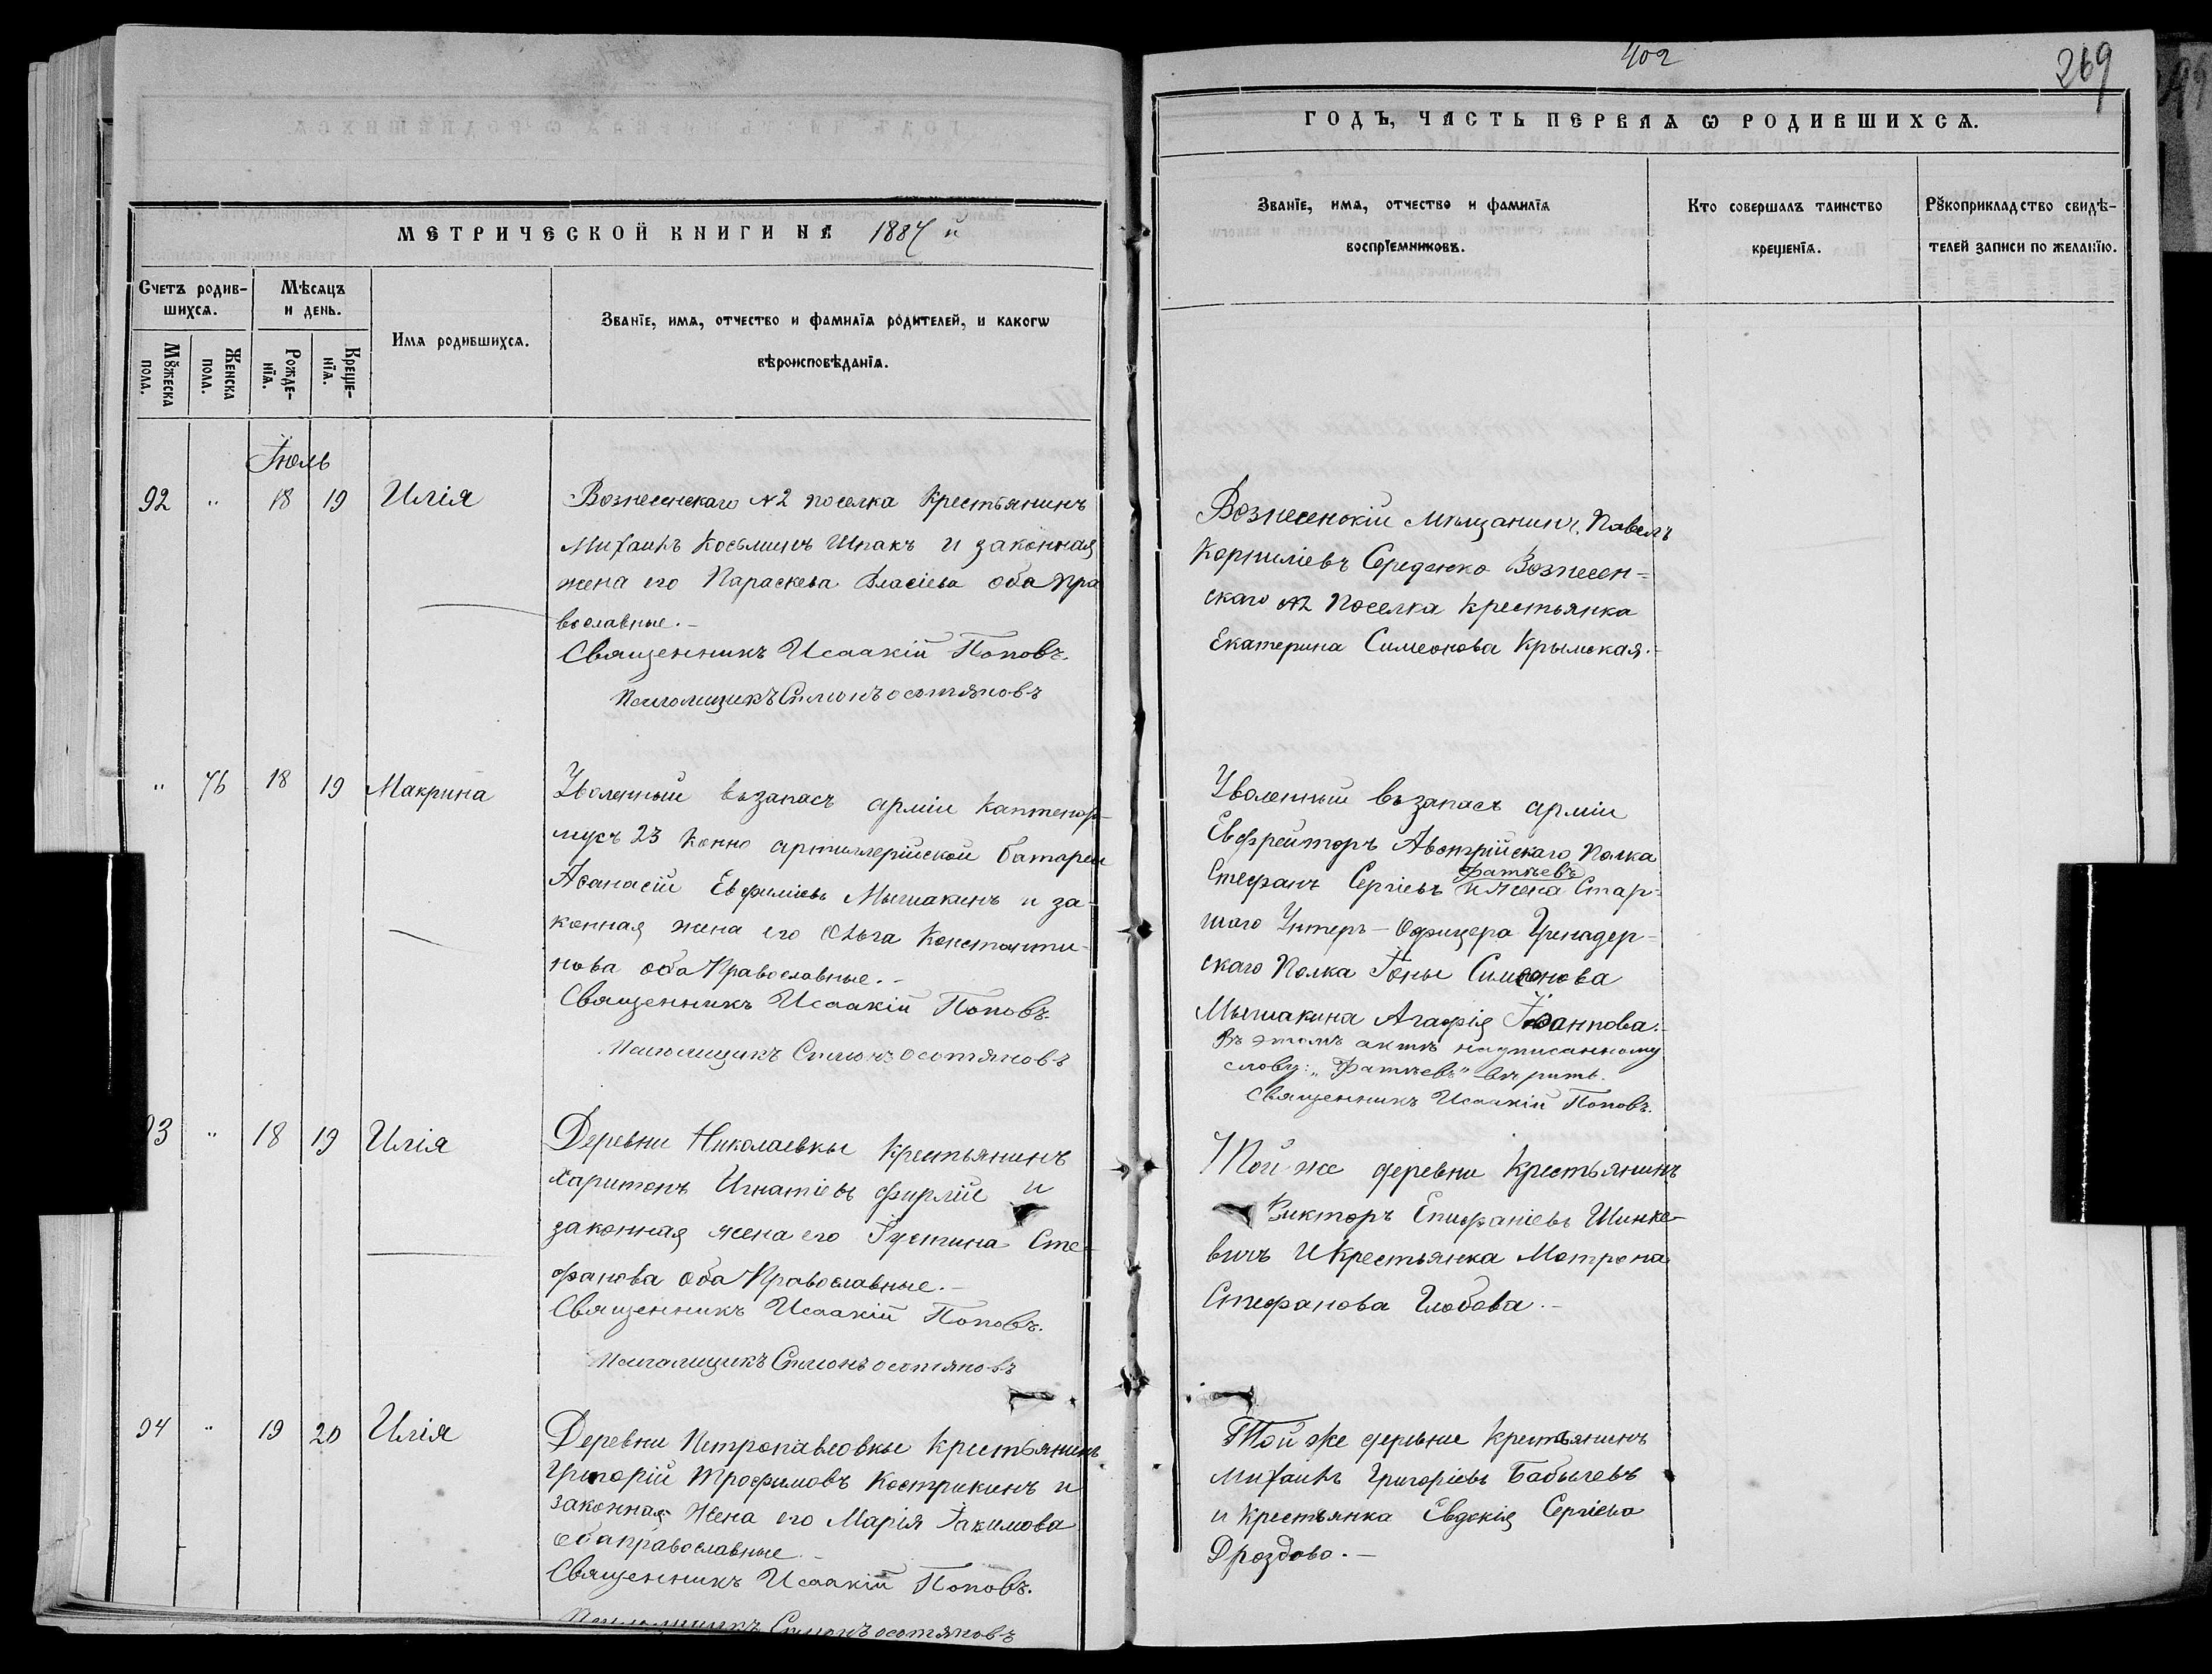 МЕТРИЧЕСКОЙ КНИГИ НА 1887 й
Счетъ родив-
шихсѧ.
Мѣсѧцъ
и день.
Имѧ родившихсѧ.
Званїе, имѧ, отчество и фамилїѧ родителей, и какогѡ
вѣроисповѣданїѧ.
Мꙋжеска
пола.
Женска
пола.
Рожде-
нїѧ.
Креще-
нїѧ.
Іюль
92 " 18 19 Илія
Вознесенскаго №2 поселка Крестьянинъ
Михаилъ Косьминъ Шпакъ и законная
жена его Параскева Власіева оба Пра
вославные.-
Священникъ Исаакій Поповъ.
Псаломщикъ Симонъ
" 76 18 19 Макрина
Уволенный въ запасъ арміи Каптенар-
мусъ 23 Конно артиллерійской батареи
Аѳанасій Евфиміевъ Мышакинъ и за-
конная жена его Ольга Константи-
нова оба Православные.-
Священникъ Исаакій Поповъ.
Псаломщикъ Симонъ
93 " 18 19 Илія
Деревни Николаевки Крестьянинъ
Харитонъ Игнатіевъ Фирлій и
законная жена его Іустина Сте-
фанова оба Православные.-
Священникъ Исаакій Поповъ.
Псаломщикъ Симонъ
94 " 19 20 Илія
Деревни Петропавловки Крестьянинъ
Григорій Трофимовъ Кострикинъ и
законная Жена его Марія Іакимова
оба православные.-
Священникъ Исаакій Поповъ.
Псаломщикъ Симонъ
402
269
ГОДЪ, ЧАСТЬ ПЕРВАѦ Ѡ РОДИВШИХСѦ.
Званїе, имѧ, отчество и фамилїѧ
воспрїемниковъ.
Кто совершалъ таинство
крещенїѧ.
Рꙋкоприкладство свидѣ-
телей записи по желанїю.
Вознесенскій Мѣщанинъ Павелъ
Корниліевъ Середенко Вознесен-
скаго №2 Поселка Крестьянка
Екатерина Симеонова Крымская.-
Уволенный въ запасъ арміи
Евфрейторъ Австрійскаго Полка
Фатѣевъ
Стефанъ Сергіевъ и Жена Стар-
шаго Унтеръ-Офицера Гренадер-
скаго Полка Іоны Симеонова
Мышакина Агафія Іоаннова.-
Въ этомъ актѣ надписанному
слову: „Фатѣевъ" вѣрить.
Священникъ Исаакій Поповъ.
Той же деревни Крестьянинъ
Викторъ Епифаніевъ Шинке-
вичъ и Крестьянка Матрона
Стефанова Глобова.-
Той же деревни Крестьянинъ
Михаилъ Григоріевъ Бабычевъ
и Крестьянка Евдокія Сергіева
Дроздова.-